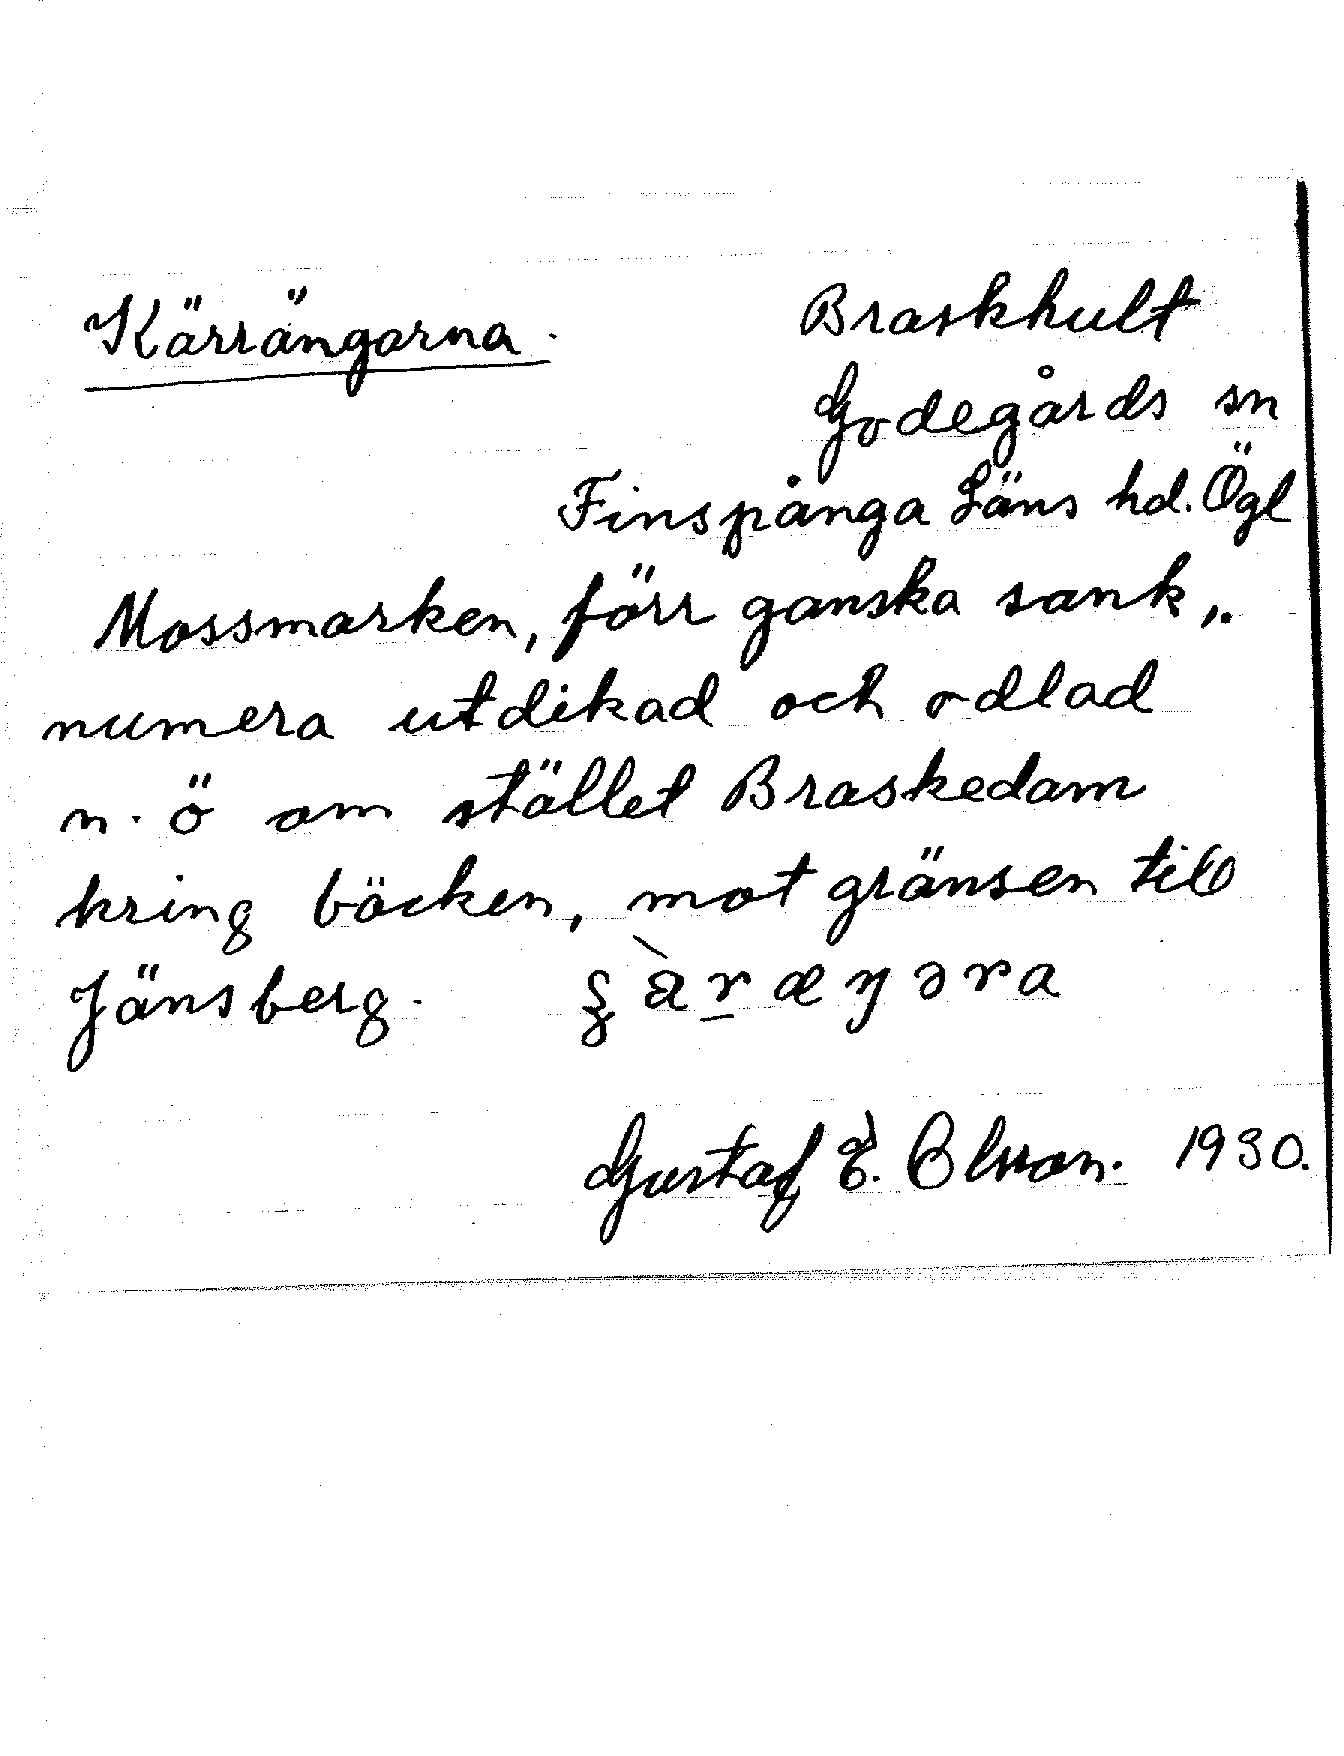 Kärrängarna.
Braskhult
Godegårds sn
Finspånga Läns hd. Ögl
Mossmarken, förr ganska sank,.
numera utdikad och odlad
n.ö om stället Braskedam
kring bäcken, mot gränsen till
Jänsberg.
Gustaf E. Olsson. 1930.